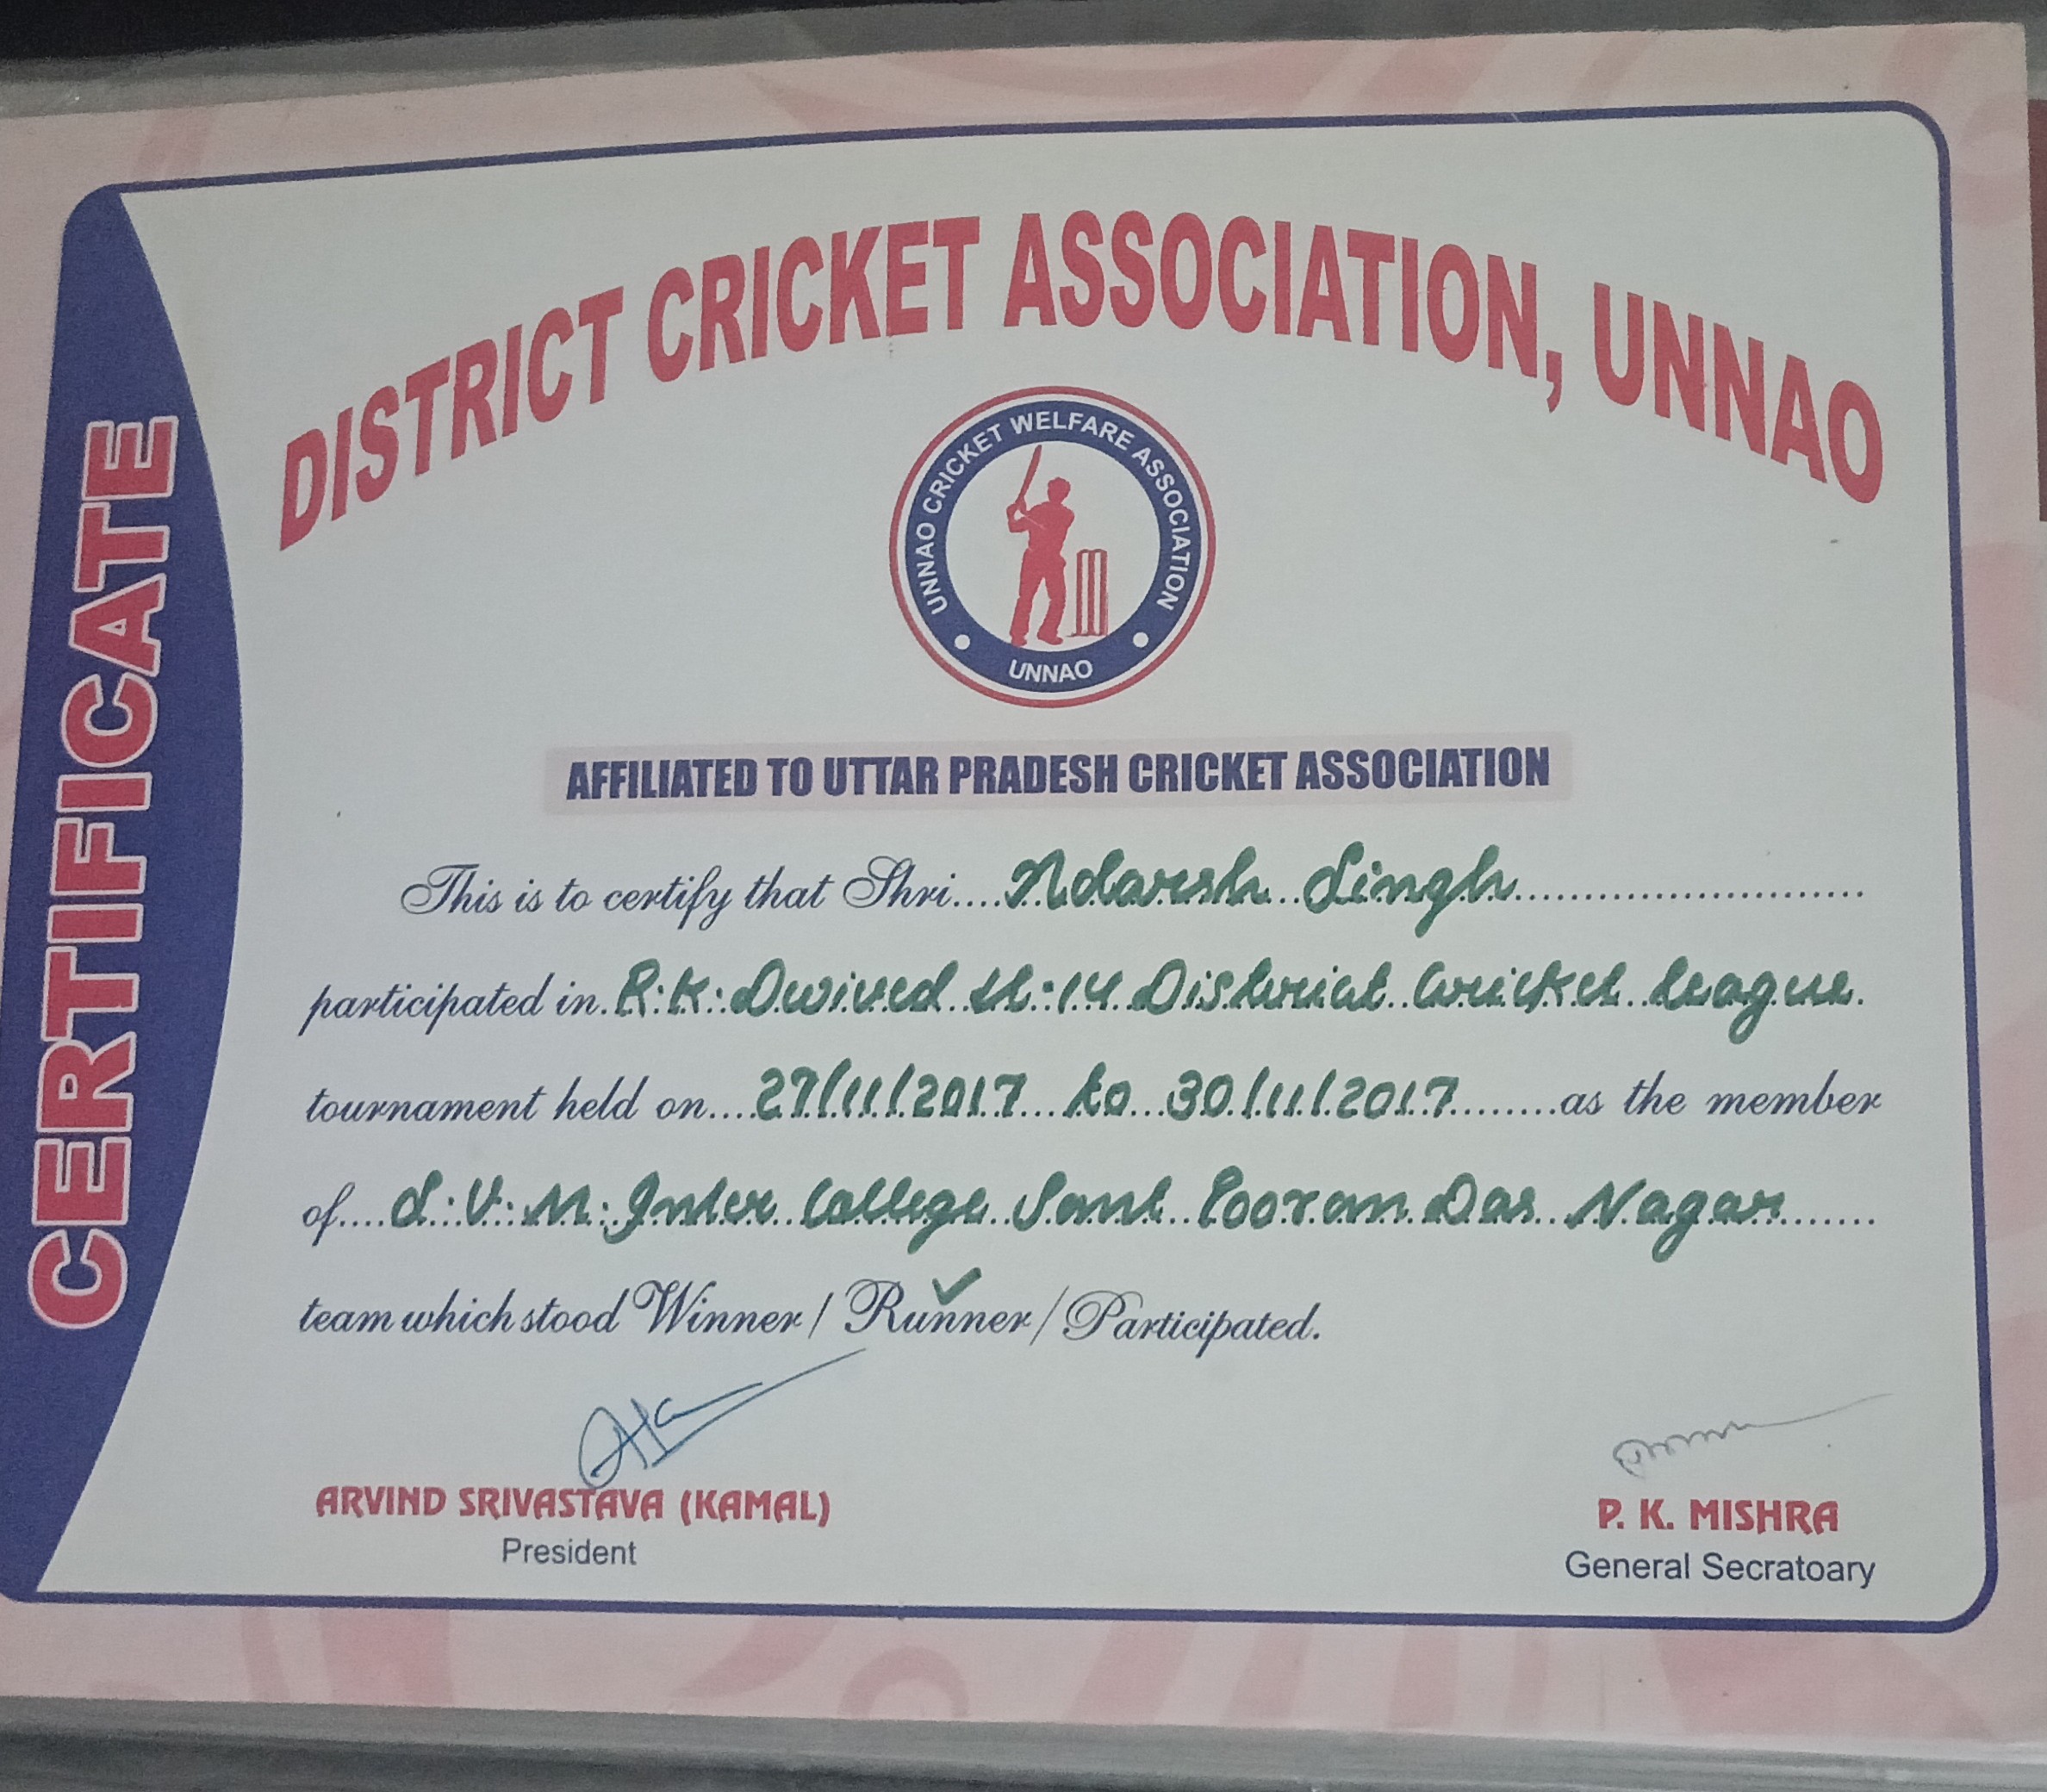 DISTRICT CRICKET ASSOCIATION, UNNAO
CERTIFICATE
UNNAO CRICKET WELFARE ASSOCIATION
UNNAO
AFFILIATED TO UTTAR PRADESH CRICKET ASSOCIATION
This is to certify that Shri....Adarsh Singh
participated in. R.K. Dwived U-14 District Cricket League.
tournament held on....27/11/2017 to 30/11/2017........as the member
of....S.V.M. Inter College Sant Pooran Das Nagar.......
team which stood Winner / Runner / Participated.
ARVIND SRIVASTAVA (KAMAL)
President
P. K. MISHRA
General Secratoary